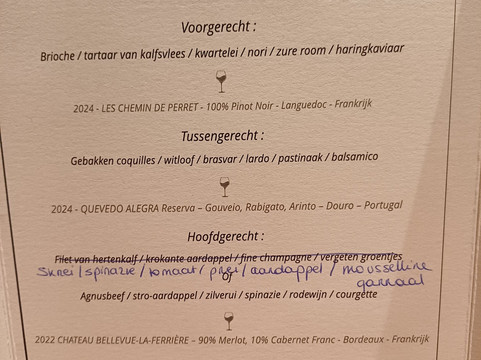 Voorgerecht :
Brioche / tartaar van kalfsvlees / kwartelei / nori / zure room / haringkaviaar
2024 - LES CHEMIN DE PERRET - 100% Pinot Noir - Languedoc - Frankrijk
Tussengerecht :
Gebakken coquilles / witloof / brasvar / lardo / pastinaak / balsamico
2024 - QUEVEDO ALEGRA Reserva – Gouveio, Rabigato, Arinto – Douro – Portugal
Hoofdgerecht :
Filet van hertenkalf / krokante aardappel / fine champagne / vergeten groentjes
Skrei / spinazie / tomaat / prei / aardappel / mousseline
garnaal
Of
Agnusbeef / stro-aardappel / zilverui / spinazie / rodewijn / courgette
2022 CHATEAU BELLEVUE-LA-FERRIÈRE – 90% Merlot, 10% Cabernet Franc - Bordeaux - Frankrijk